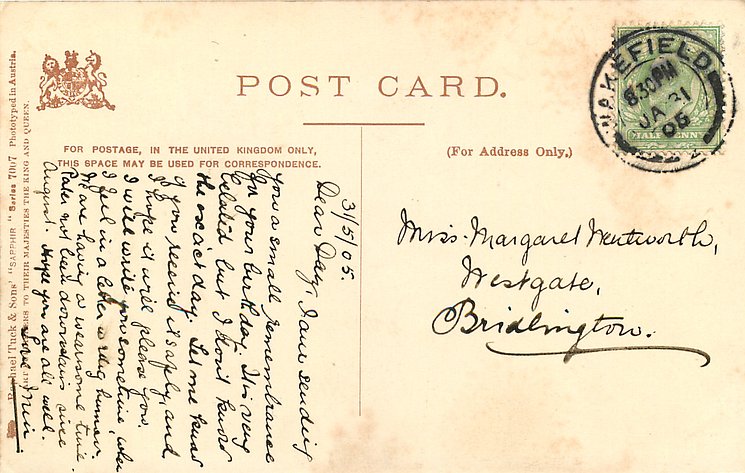 POST CARD.
FOR POSTAGE, IN THE UNITED KINGDOM ONLY,
THIS SPACE MAY BE USED FOR CORRESPONDENCE.
(For Address Only.)
WAKEFIELD
8.30 PM
JA 31
05
HALFPENNY
Miss Margaret Wentworth,
Westgate,
Bridlington.
31/5/05.
Dear Daisy, I am sending
you a small remembrance
for your birthday. It is very
belated but I don't know
the exact day. Let me know
if you receive it safely, and
I hope it will please you.
I will write you sometime, when
I feel in a letter writing humour.
We are having a wearisome time.
Pater not been downstairs since
August. Hope you are all well.
Love
Raphael Tuck & Sons' "SAPPHIR" Series 7007 Phototyped in Austria.
TO THEIR MAJESTIES THE KING AND QUEEN.